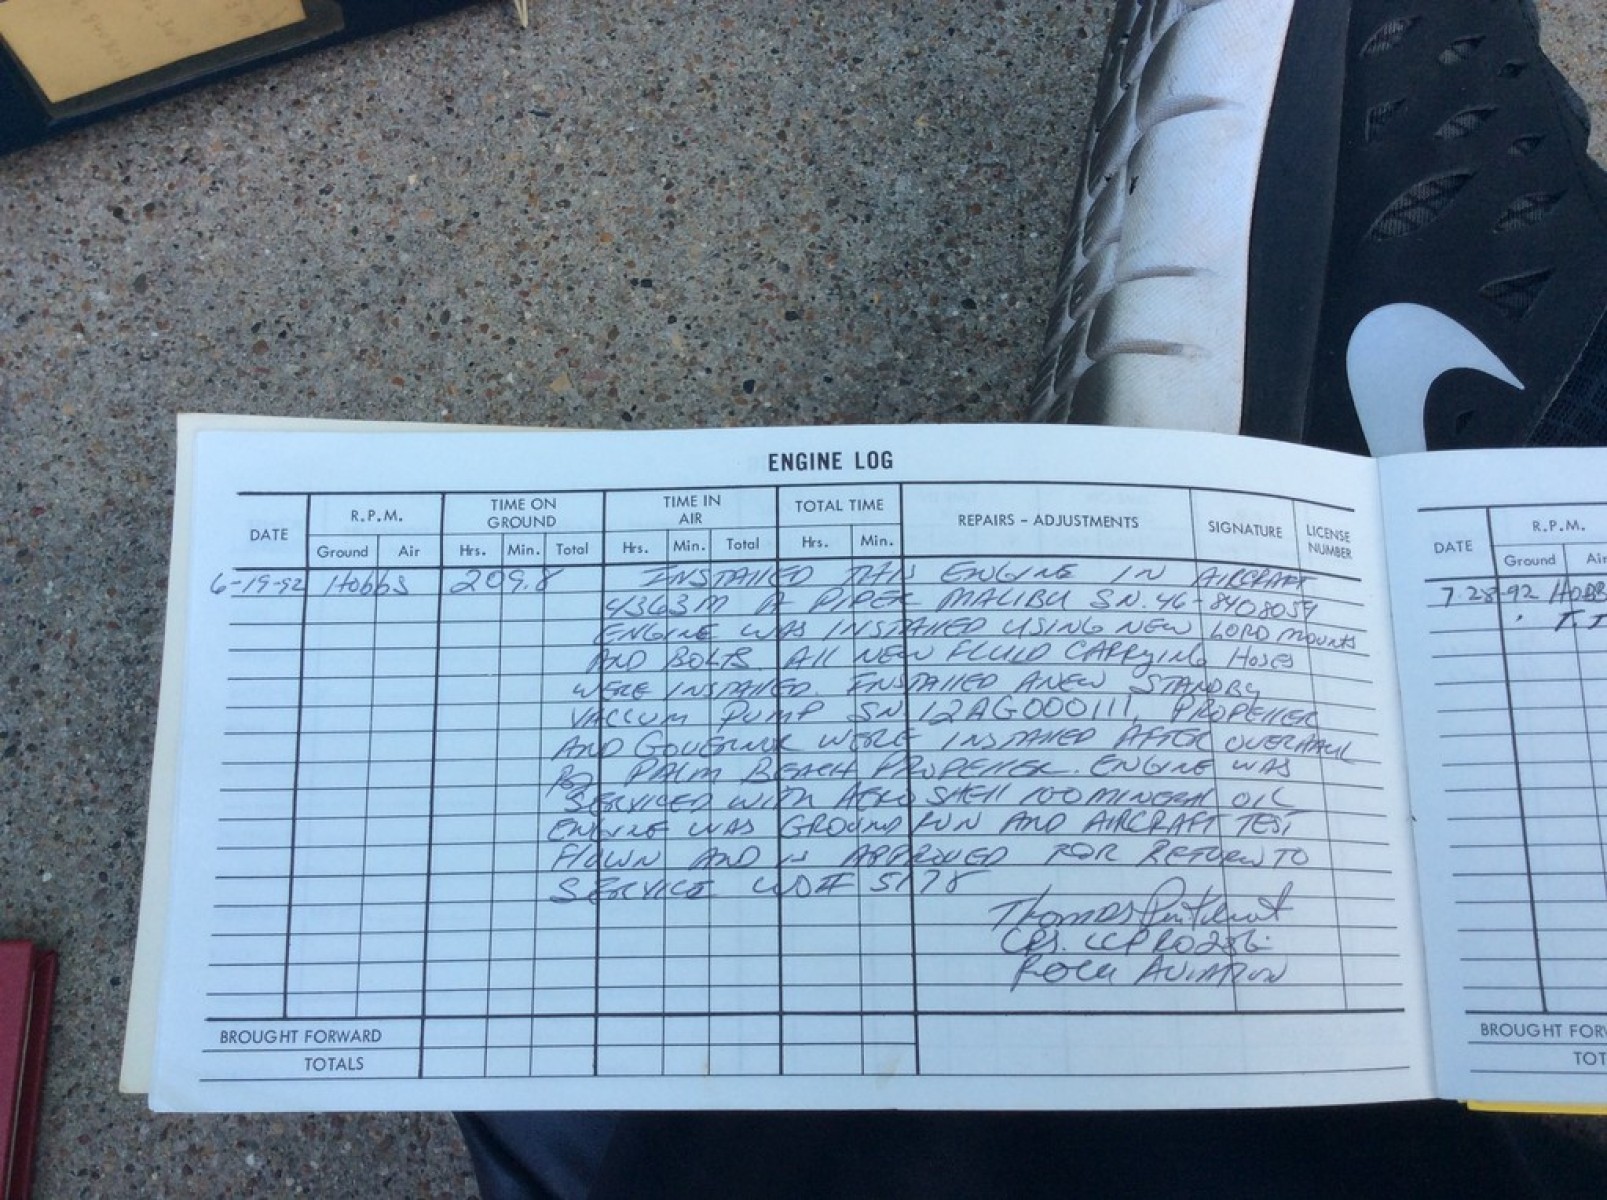 ENGINE LOG
DATE R.P.M. TIME ON GROUND TIME IN AIR TOTAL TIME REPAIRS - ADJUSTMENTS SIGNATURE LICENSE NUMBER
Ground Air Hrs. Min. Total Hrs. Min. Total Hrs. Min.
6-19-92 Hobbs 209.8 INSTALLED THIS ENGINE IN AIRCRAFT
4363M A PIPER MALIBU SN. 46-8408059
ENGINE WAS INSTALLED USING NEW LORD MOUNTS
AND BOLTS. All NEW FLUID CARRYING HOSES
WERE INSTALLED. INSTALLED A NEW STANDBY
VACCUM PUMP SN 12AG000111. PROPELLER
AND GOVERNOR WERE INSTALLED AFTER OVERHAUL
By PALM BEACH PROPELLER. ENGINE WAS
SERVICED WITH AERO SHELL 100 MINERAL OIL
ENGINE WAS GROUND RUN AND AIRCRAFT TEST
FLOWN AND IS APPROVED FOR RETURN TO
SERVICE WO# 5178
Thomas
CRS.
AVIATION
BROUGHT FORWARD
TOTALS
DATE R.P.M.
Ground Air
7-28-92 HOBB
T.T
BROUGHT FOR
TOT